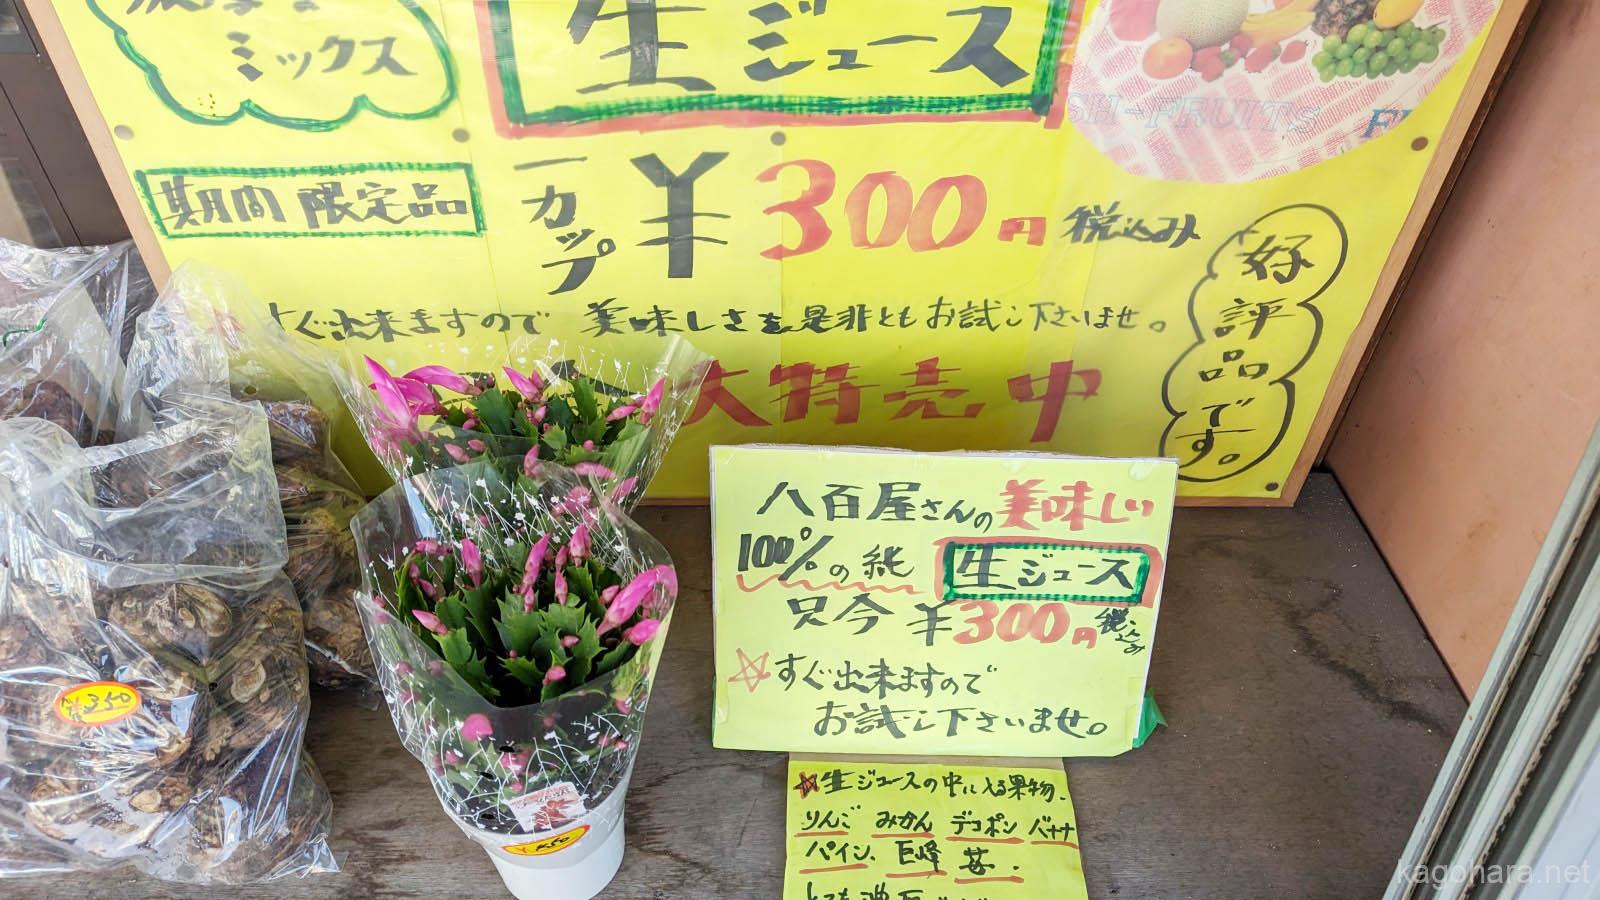 ミックス
生ジュース
SH-FRUITS
期間限定品
一カップ ¥300円 税込み
すぐ出来ますので 美味しさを是非ともお試し下さいませ。
大特売中
好評品です。
八百屋さんの美味しい
100%の純 生ジュース
只今 ¥300円 税込み
☆すぐ出来ますので
お試し下さいませ。
☆生ジュースの中に入る果物.
りんご みかん デコポン バナナ
パイン、巨峰 苺.
とても
350
kagohara.net